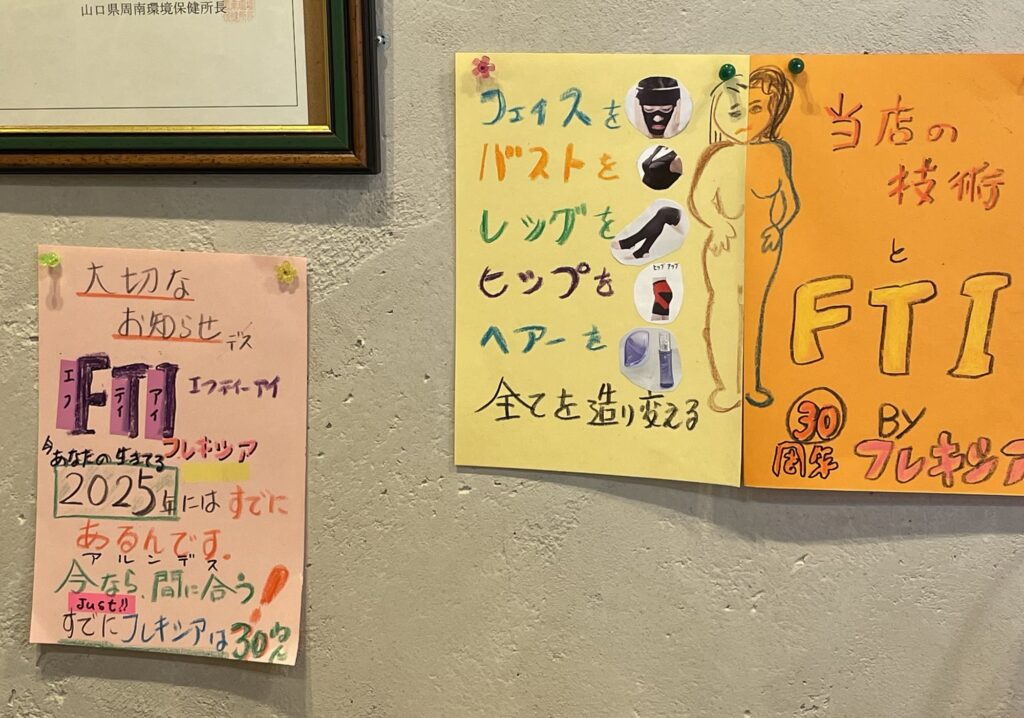 山口県周南環境保健所長
大切な
お知らせデス
エフ ティ アイ
FTI エフティーアイ
フレキシア
今あなたの生きてる
2025年にはすでに
あるんです。
アルンデス
今なら、間に合う!
Just!!
すでにフレキシアは30ねん
フェイスを
バストを
レッグを
ヒップアップ
ヒップを
ヘアーを
全てを造り変える
当店の
技術
と
FTI
30
周年
BY
フレキシア